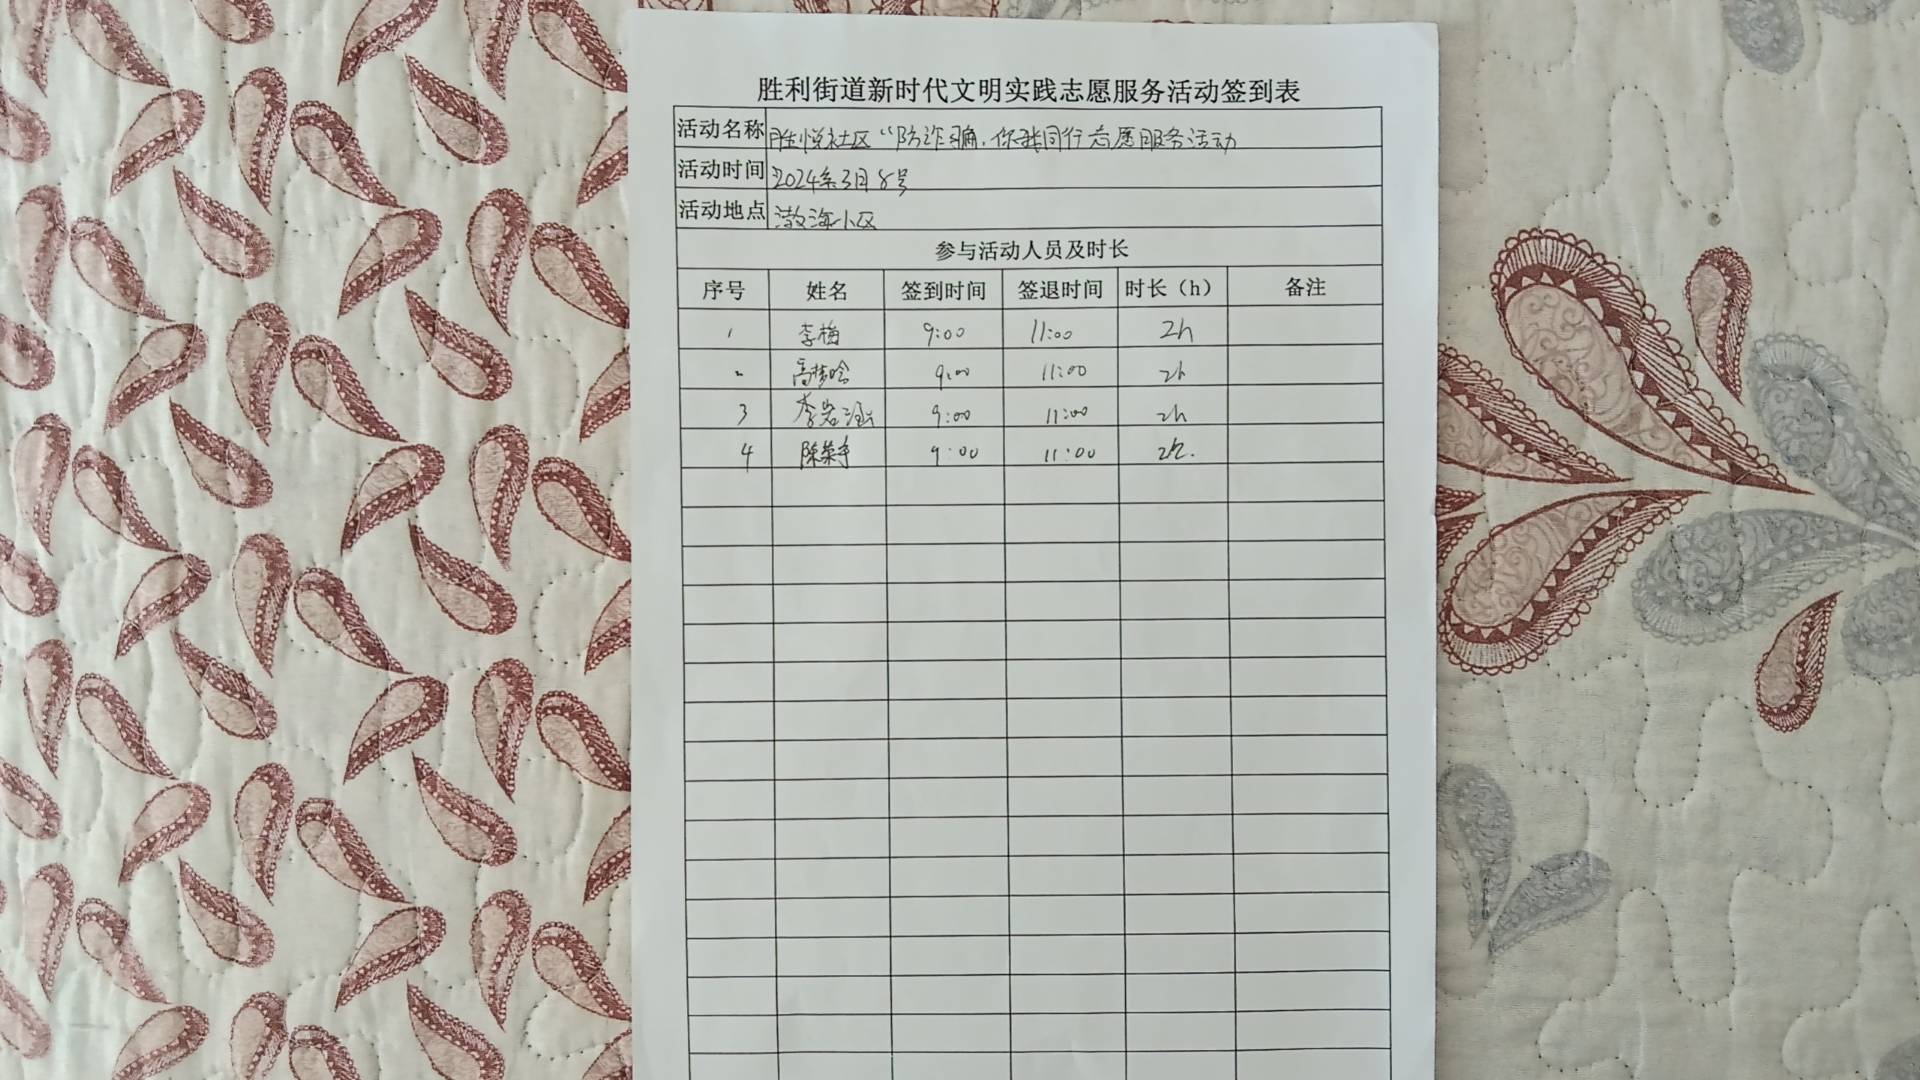 胜利街道新时代文明实践志愿服务活动签到表
活动名称 胜悦社区“防诈骗,你我同行志愿服务活动
活动时间 2024年3月8号
活动地点 渤海小区
参与活动人员及时长
序号 姓名 签到时间 签退时间 时长（h） 备注
1 李梅 9:00 11:00 2h
2 9:00 11:00 2h
3 李岩涵 9:00 11:00 2h
4 9:00 11:00 2h.